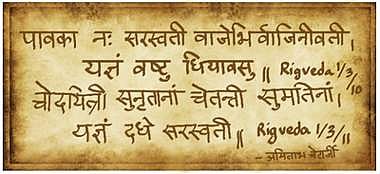 पावका नः सरस्वती वाजेभिर्वाजिनीवती।
यज्ञं वष्टु धियावसु॥ Rigveda 1/3/10
चोदयित्री सुनृतानां चेतन्ती सुमतिनां।
यज्ञं दधे सरस्वती॥ Rigveda 1/3/11
- अमिताभ चेटर्जी